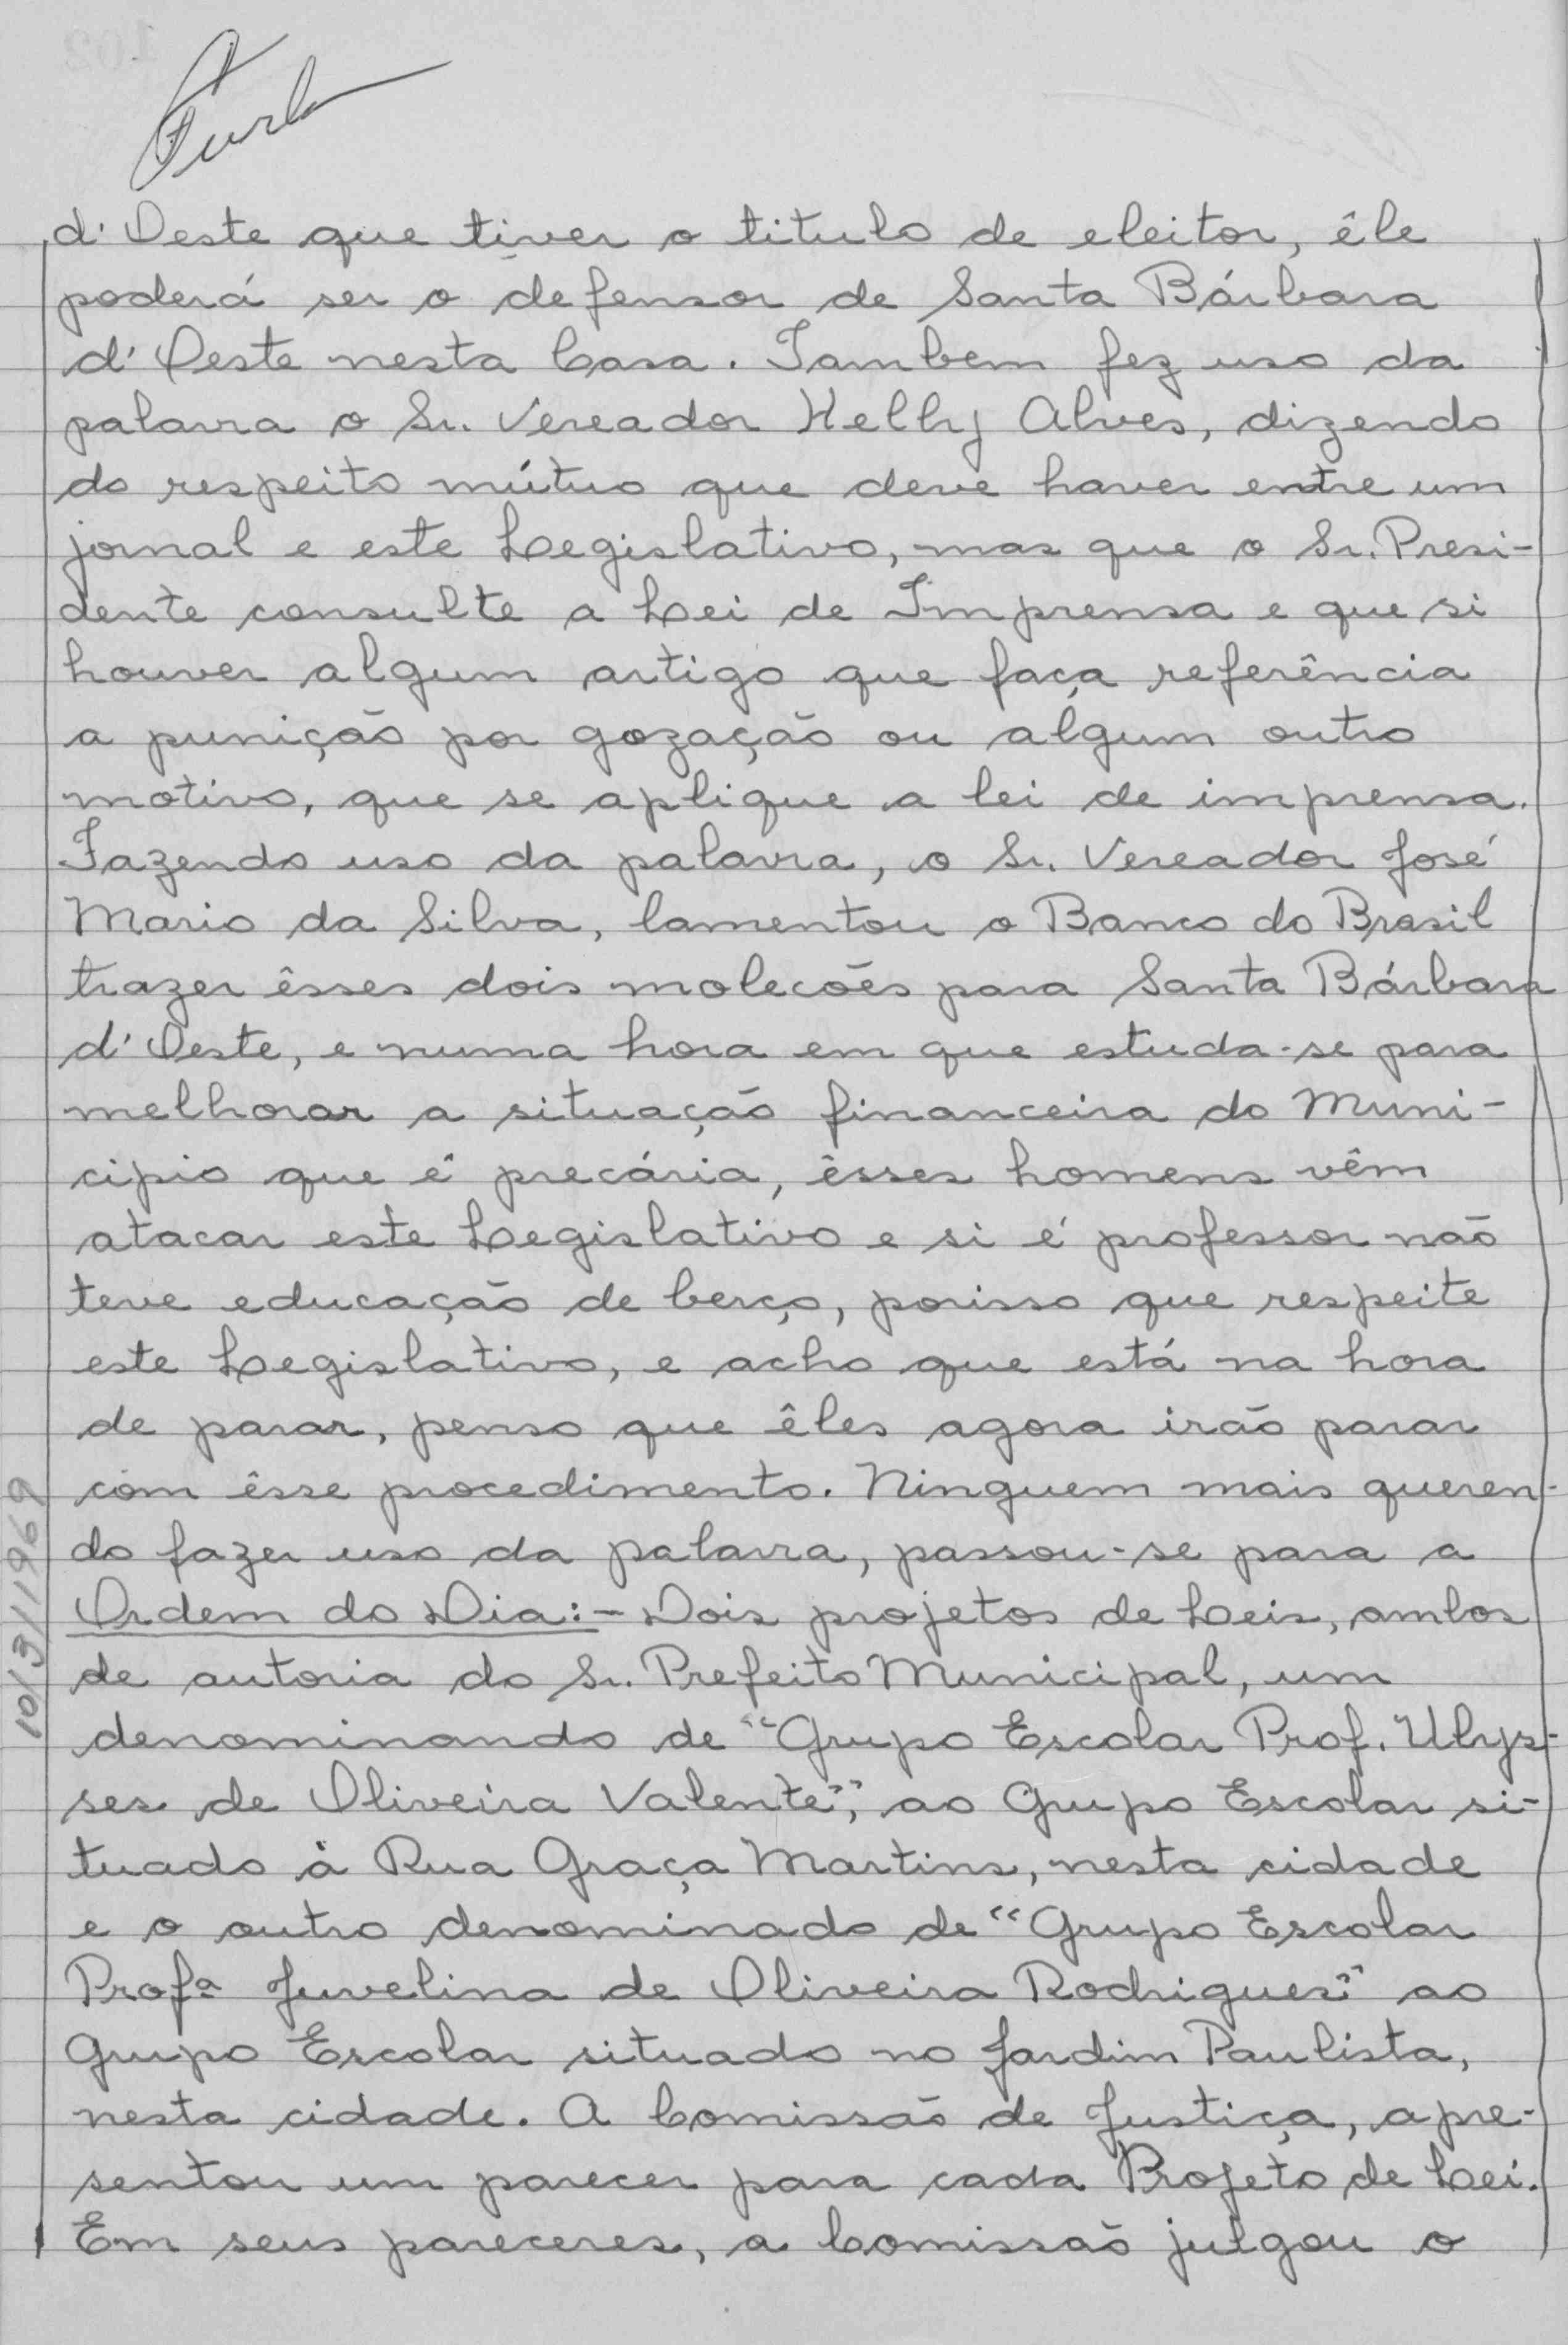 d'Oeste que tiver o titulo de eleitor, êle
poderá ser o defensor de Santa Bárbara
d'Oeste nesta Casa. Tambem fez uso da
palavra o Sr. Vereador Kelly Alves, dizendo
do respeito mútuo que deve haver entre um
jornal e este Legislativo, mas que o Sr. Presi-
dente consulte a Lei de Imprensa e que si
houver algum artigo que faça referência
a punição por gozação ou algum outro
motivo, que se aplique a lei de imprensa.
Fazendo uso da palavra, o Sr. Vereador José
Mario da Silva, lamentou o Banco do Brasil
trazer êsses dois molecões para Santa Bárbara
d'Oeste, e numa hora em que estuda-se para
melhorar a situação financeira do Muni-
cipio que é precária, êsses homens vêm
atacar este Legislativo e si é professor não
teve educação de berço, porisso que respeite
este Legislativo, e acho que está na hora
de parar, penso que êles agora irão parar
com êsse procedimento. Ninguem mais queren-
do fazer uso da palavra, passou-se para a
Ordem do Dia:- Dois projetos de Leis, ambos
de autoria do Sr. Prefeito Municipal, um
denominando de "Grupo Escolar Prof. Ulys-
ses de Oliveira Valente", ao Grupo Escolar si-
tuado à Rua Graça Martins, nesta cidade
e o outro denominado de "Grupo Escolar
Profª Juvelina de Oliveira Rodrigues" ao
Grupo Escolar situado no Jardim Paulista,
nesta cidade. A Comissão de Justiça, apre-
sentou um parecer para cada Projeto de Lei.
Em seus pareceres, a Comissão julgou o
10/3/1969